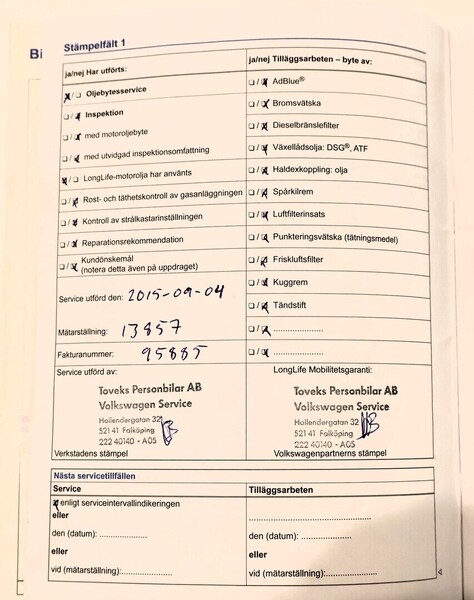 Bi
Stämpelfält 1
ja/nej Har utförts:
☒ / ☐ Oljebytesservice
☐ / ☒ Inspektion
☐ / ☒ med motoroljebyte
☐ / ☒ med utvidgad inspektionsomfattning
☒ / ☐ LongLife-motorolja har använts
☐ / ☒ Rost- och täthetskontroll av gasanläggningen
☐ / ☒ Kontroll av strålkastarinställningen
☐ / ☒ Reparationsrekommendation
☐ / ☒ Kundönskemål
(notera detta även på uppdraget)
Service utförd den: 2015-09-04
Mätarställning: 13857
Fakturanummer: 95885
Service utförd av:
Toveks Personbilar AB
Volkswagen Service
Hollendergatan 32
521 41 Falköping
222 40140 - A05
Verkstadens stämpel
ja/nej Tilläggsarbeten – byte av:
☐ / ☒ AdBlue®
☐ / ☒ Bromsvätska
☐ / ☒ Dieselbränslefilter
☐ / ☒ Växellådsolja: DSG®, ATF
☐ / ☒ Haldexkoppling: olja
☐ / ☒ Spårkilrem
☐ / ☒ Luftfilterinsats
☐ / ☒ Punkteringsvätska (tätningsmedel)
☐ / ☒ Friskluftsfilter
☐ / ☒ Kuggrem
☐ / ☒ Tändstift
☐ / ☒ ....................
☐ / ☒ ....................
LongLife Mobilitetsgaranti:
Toveks Personbilar AB
Volkswagen Service
Hollendergatan 32
521 41 Falköping
222 40140 - A05
Volkswagenpartnerns stämpel
Nästa servicetillfällen
Service
☒ enligt serviceintervallindikeringen
eller
den (datum): ....................
eller
vid (mätarställning):....................
Tilläggsarbeten
..............................
den (datum): ....................
eller
vid (mätarställning):....................
4